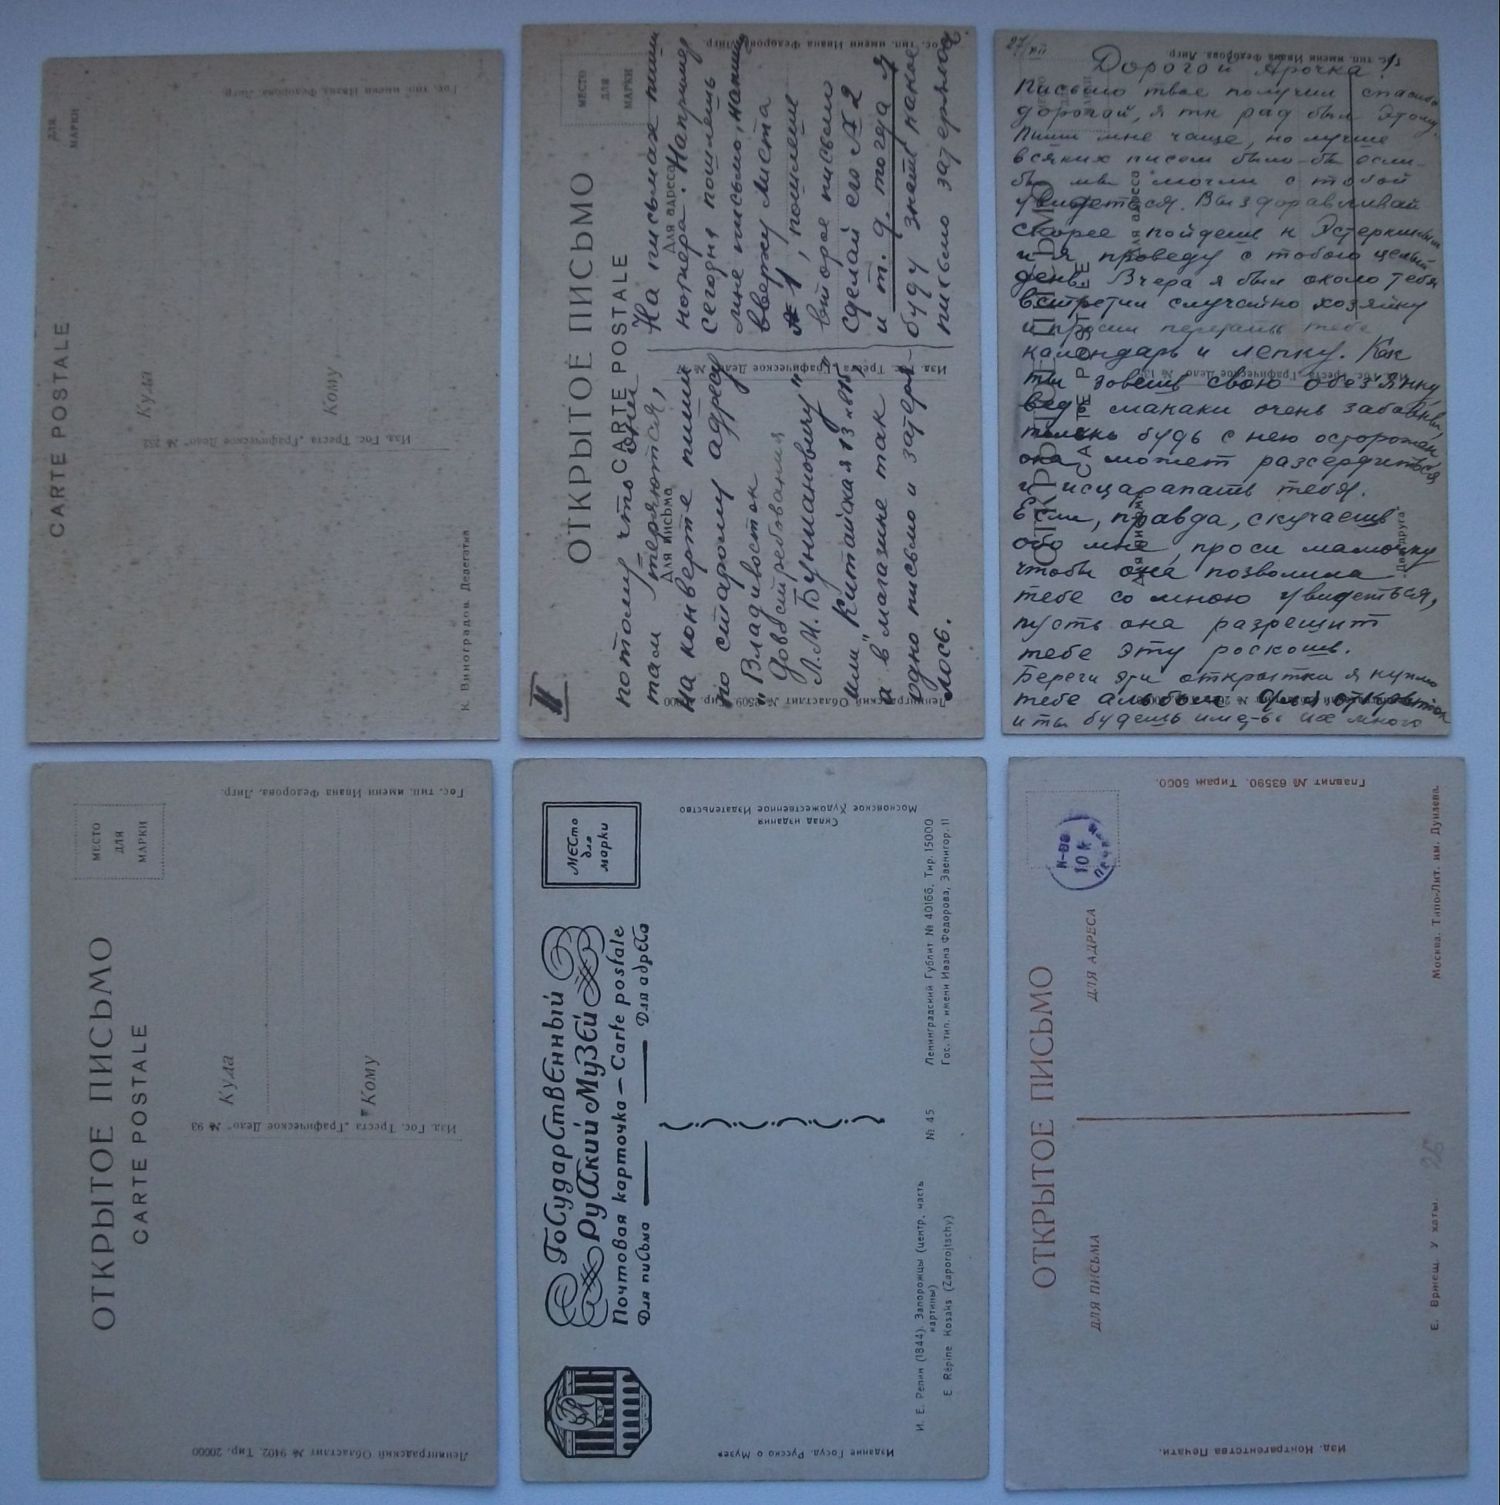 ДЛЯ
МАРКИ
CARTE POSTALE
Куда
Кому
Гос. тип. имени Ивана Федорова, Лнгр.
Изд. Гос. Треста „Графическое Дело" № 202
К. Виноградов. Делегатка
II
МЕСТО
ДЛЯ
МАРКИ
ОТКРЫТОЕ ПИСЬМО
CARTE POSTALE
Для адреса
Для письма
Гос. тип. имени Ивана Федорова, Лнгр.
Изд. Гос. Треста „Графическое Дело" №
Ленинградский Областлит № 2509
потому что они
там теряются,
На конверте пиши
по старому адресу
„Владивосток
До востребования
Л. М. Бунимановичу"
или „Китайская 13 кв 15",
а в магазине так
одно письмо и затеря-
лось.
На письмах пиши
номера. Например
сегодня пошлешь
мне письмо, напиши
вверху листа
№ 1, пошлешь
второе письмо
сделай его № 2
и т. д. тогда я
буду знать какое
письмо затерялось
27/VII
Дорогой Ярочка!
Письмо твое получил спасибо
дорогой, я так рад был этому.
Пиши мне чаще, но лучше
всяких писем было-бы если-
бы мы могли с тобой
увидеться. Выздоравливай
скорее пойдешь к Эстеркиным
и я проведу с тобою целый
день. Вчера я был около тебя
встретил случайно хозяйку
и просил передать тебе
календарь и лепку. Как
ты зовешь свою обезянку,
ведь макаки очень забавны,
только будь с нею осторожен
она может рассердиться
и исцарапать тебя.
Если, правда, скучаешь
обо мне, проси мамочку
чтобы она позволила
тебе со мною увидеться,
пусть она разрешит
тебе эту роскошь.
Береги эти открытки я куплю
тебе альбом для открыток
и ты будешь иметь их много
ОТКРЫТОЕ ПИСЬМО
CARTE POSTALE
Гос. тип. имени Ивана Федорова, Лнгр.
МЕСТО
ДЛЯ
МАРКИ
ОТКРЫТОЕ ПИСЬМО
CARTE POSTALE
Куда
Кому
Гос. тип. имени Ивана Федорова, Лнгр.
Изд. Гос. Треста „Графическое Дело" № 93
Ленинградский Областлит № 9402. Тир. 20000
МЕСТО
для
марки
ГОСУДАРСТВЕННЫЙ
РУССКИЙ МУЗЕЙ
Почтовая карточка — Carte postale
Для письма
Для адреса
Склад издания
Московское Художественное Издательство
И. Е. Репин (1844). Запорожцы (центр. часть
картины)
E. Répine Kosaks (Zaporojtschy)
№ 45
Ленинградский Гублит № 40166. Тир. 15000
Гос. тип. имени Ивана Федорова, Звенигор. 11
Издание Госуд. Русско о Музея
10 к
ОТКРЫТОЕ ПИСЬМО
ДЛЯ ПИСЬМА
ДЛЯ АДРЕСА
Главлит № 63590. Тираж 5000.
Москва. Типо-Лит. им. Дунаева.
Е. Вржещ. У хаты.
Изд. Контрагентства Печати.